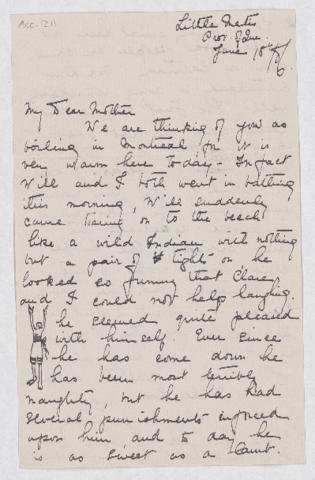 Acc. 211
Little Metis
Prov. of Que.
June 18th
6
My Dear Mother
We are thinking of you as
boiling in Montreal for it is
very warm here to-day - In fact
Will and I both went in bathing
this morning, Will suddenly
came tearing on to the beach
like a wild Indian with nothing
but a pair of tights on he
looked so funny that Clare
and I could not help laughing.
he seemed quite pleased
with himself. Ever since
he has come down he
has been most terribly
naughty, but he has had
several punishments inforced
upon him, and to day he
is as sweet as a Saint.